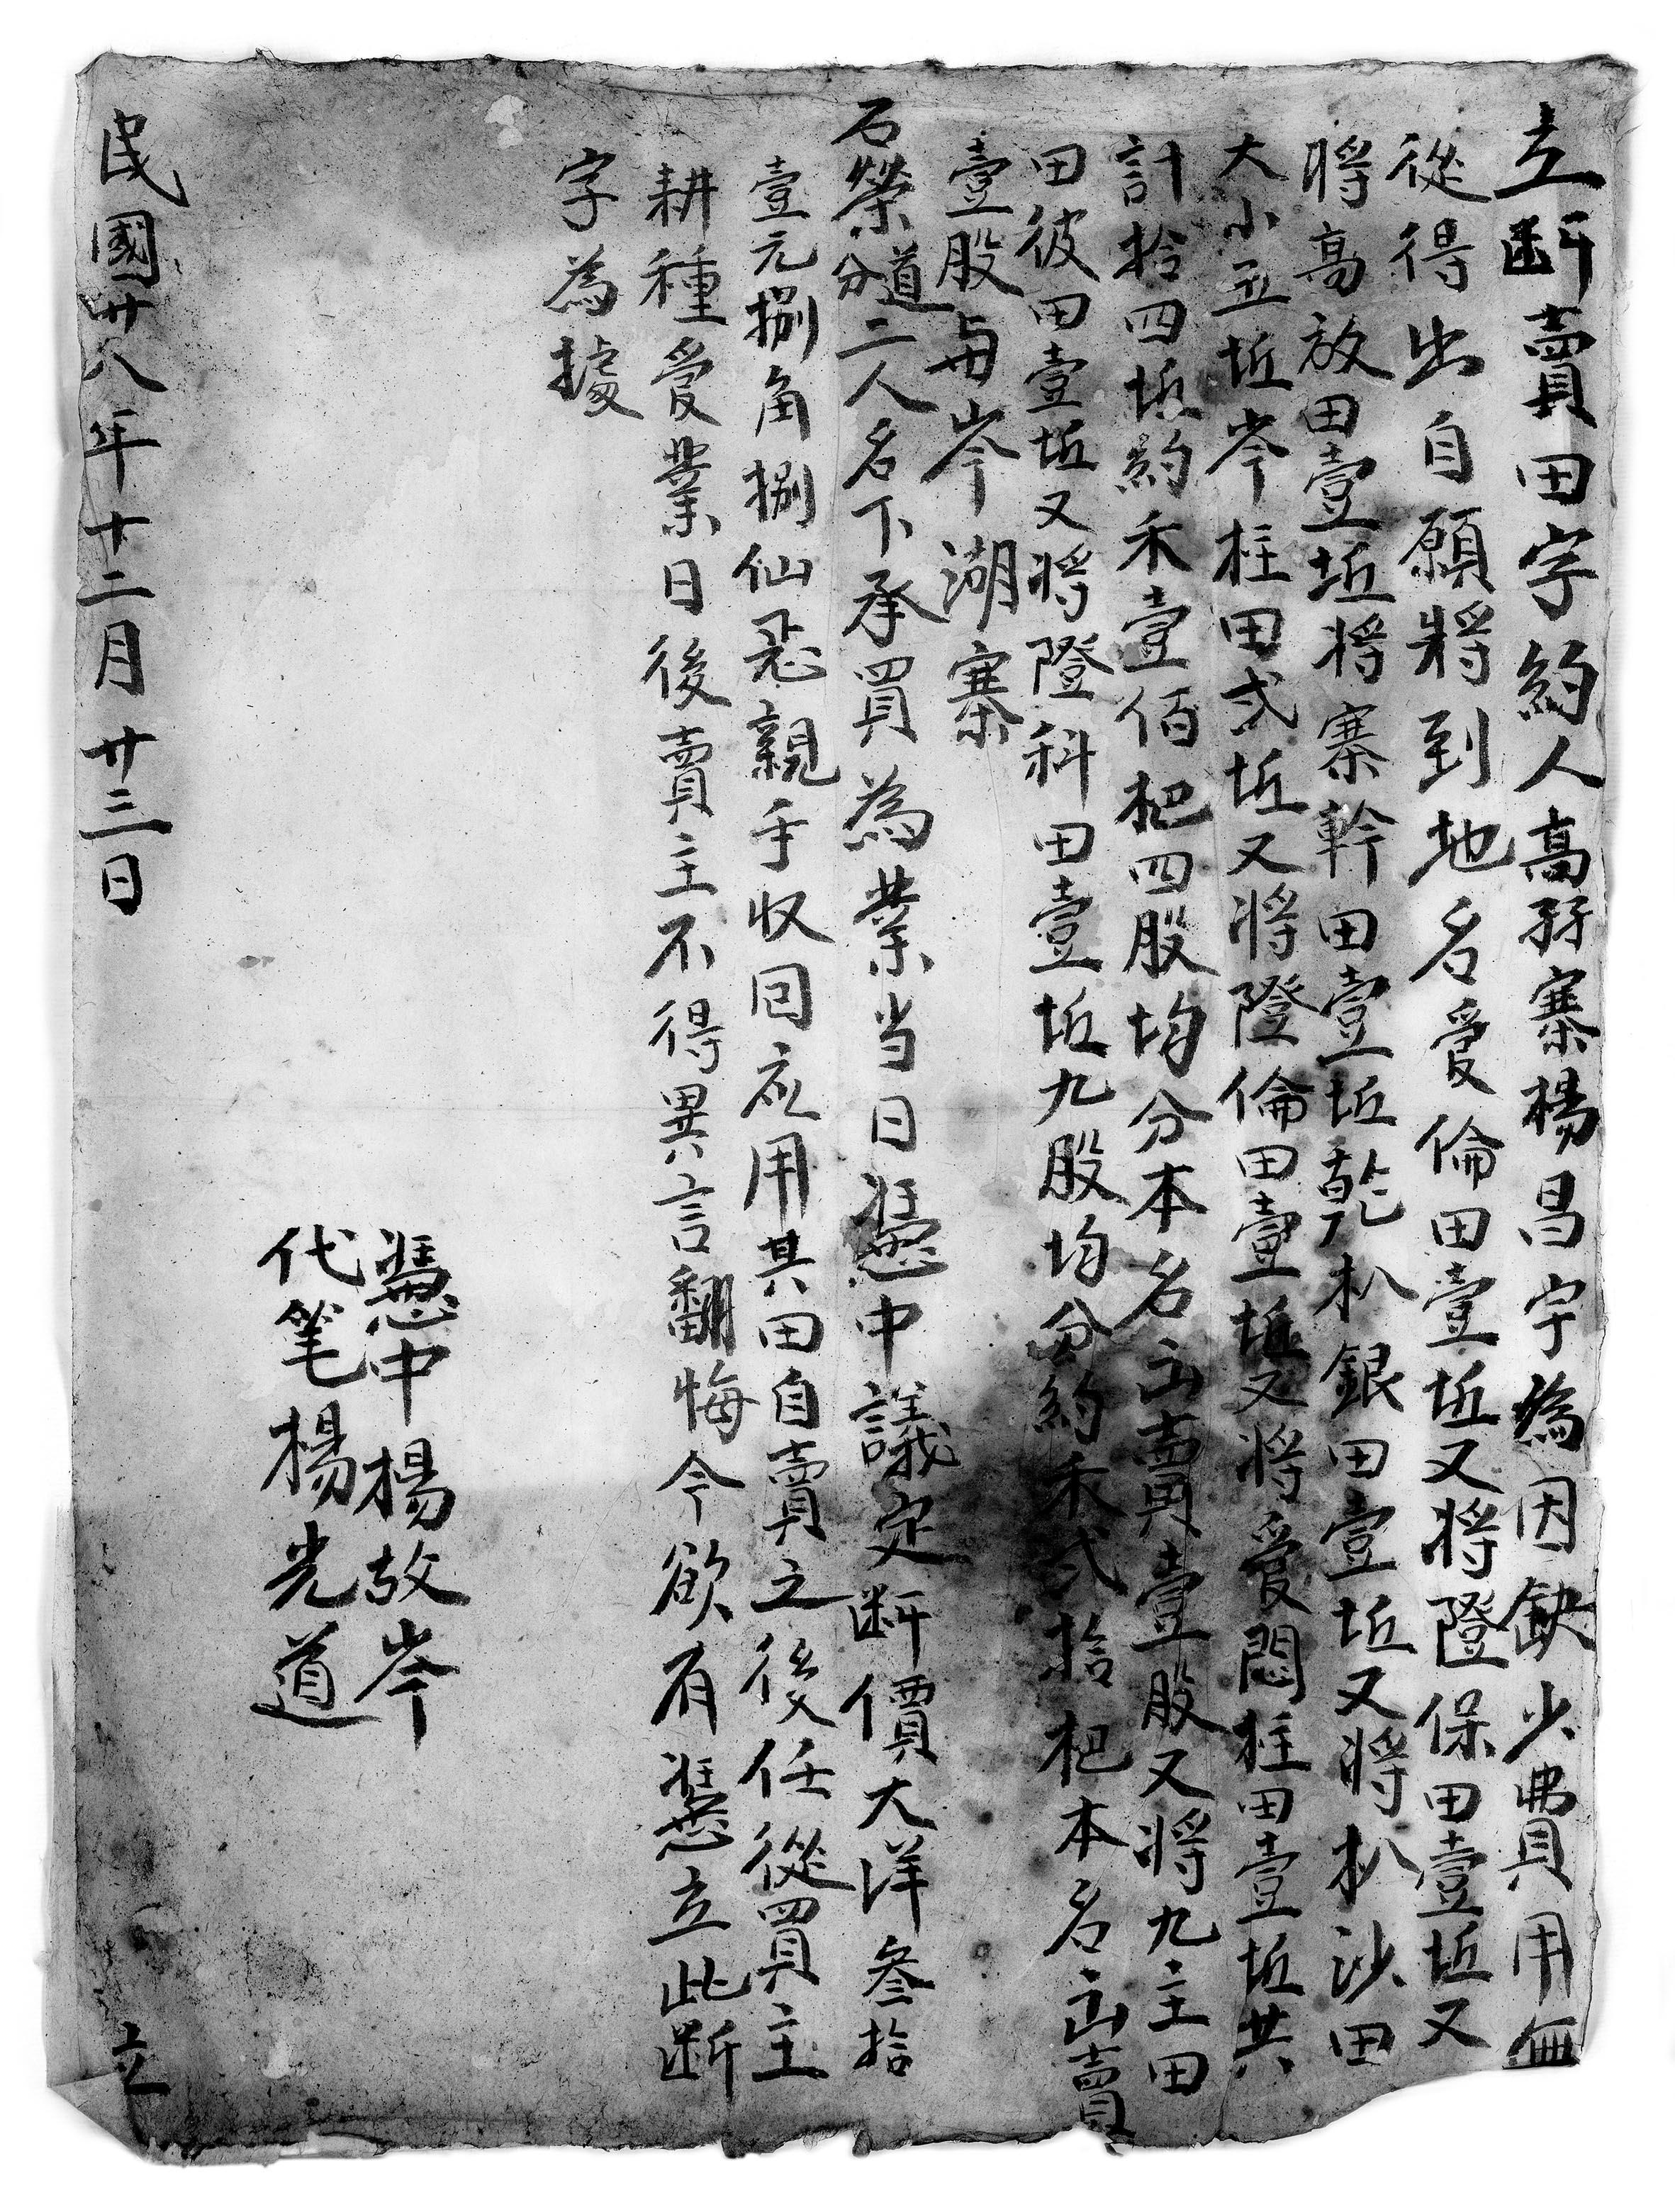 立断賣田字約人高孖寨楊昌宇為因缺少費用無
從得出自願將到地名受倫田壹坵又將隥保田壹坵又
將高放田壹坵將寨幹田壹坵乾朳銀田壹坵又將朳沙田
大小五坵岑柱田弍坵又將隥倫田壹坵又將受悶柱田壹坵共
計拾四坵約禾壹佰把四股均分本名出賣壹股又將九主田
田彼田壹坵又將隥科田壹坵九股均分約禾弍拾把本名出賣
壹股与岑湖寨
石榮分道二人名下承買為業当日憑中議定断價大洋叁拾
壹元捌角捌仙忍親手收回应用其田自賣之後任從買主
耕種受業日後賣主不得異言翻悔今欲有憑立此断
字為據
憑中楊故岑
代笔楊光道
民國廿八年十二月廿三日 立